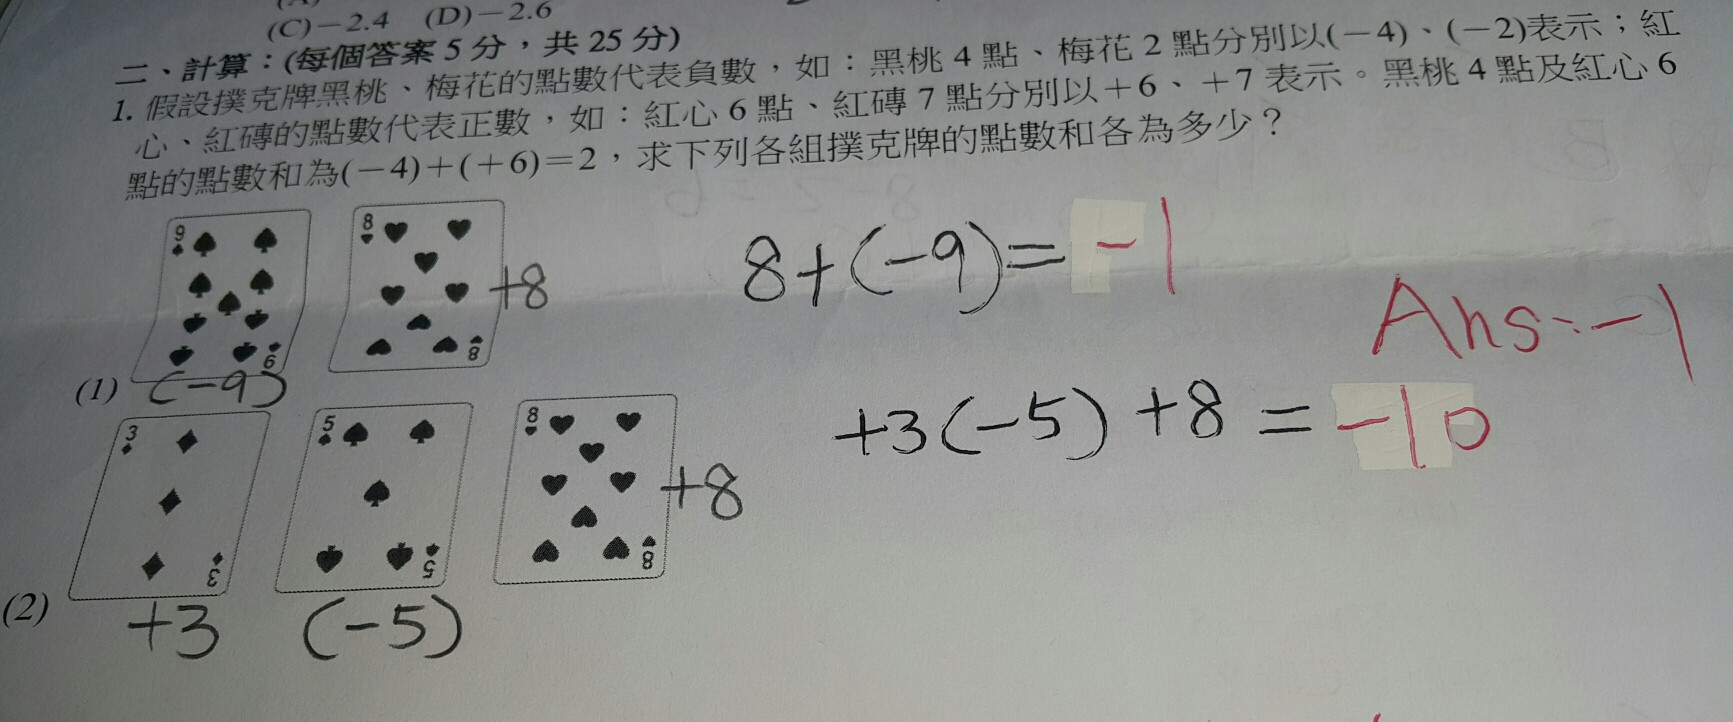 (C)－2.4 (D)－2.6
二、計算：(每個答案 5 分，共 25 分)
1. 假設撲克牌黑桃、梅花的點數代表負數，如：黑桃 4 點、梅花 2 點分別以(－4)、(－2)表示；紅
心、紅磚的點數代表正數，如：紅心 6 點、紅磚 7 點分別以＋6、＋7 表示。黑桃 4 點及紅心 6
點的點數和為(－4)＋(＋6)＝2，求下列各組撲克牌的點數和各為多少？
9
8
+8
8+(-9)=-1
9
8
Ans:-1
(1) (-9)
3
5
8
+8
+3(-5)+8=-10
3
5
8
(2)
+3 (-5)